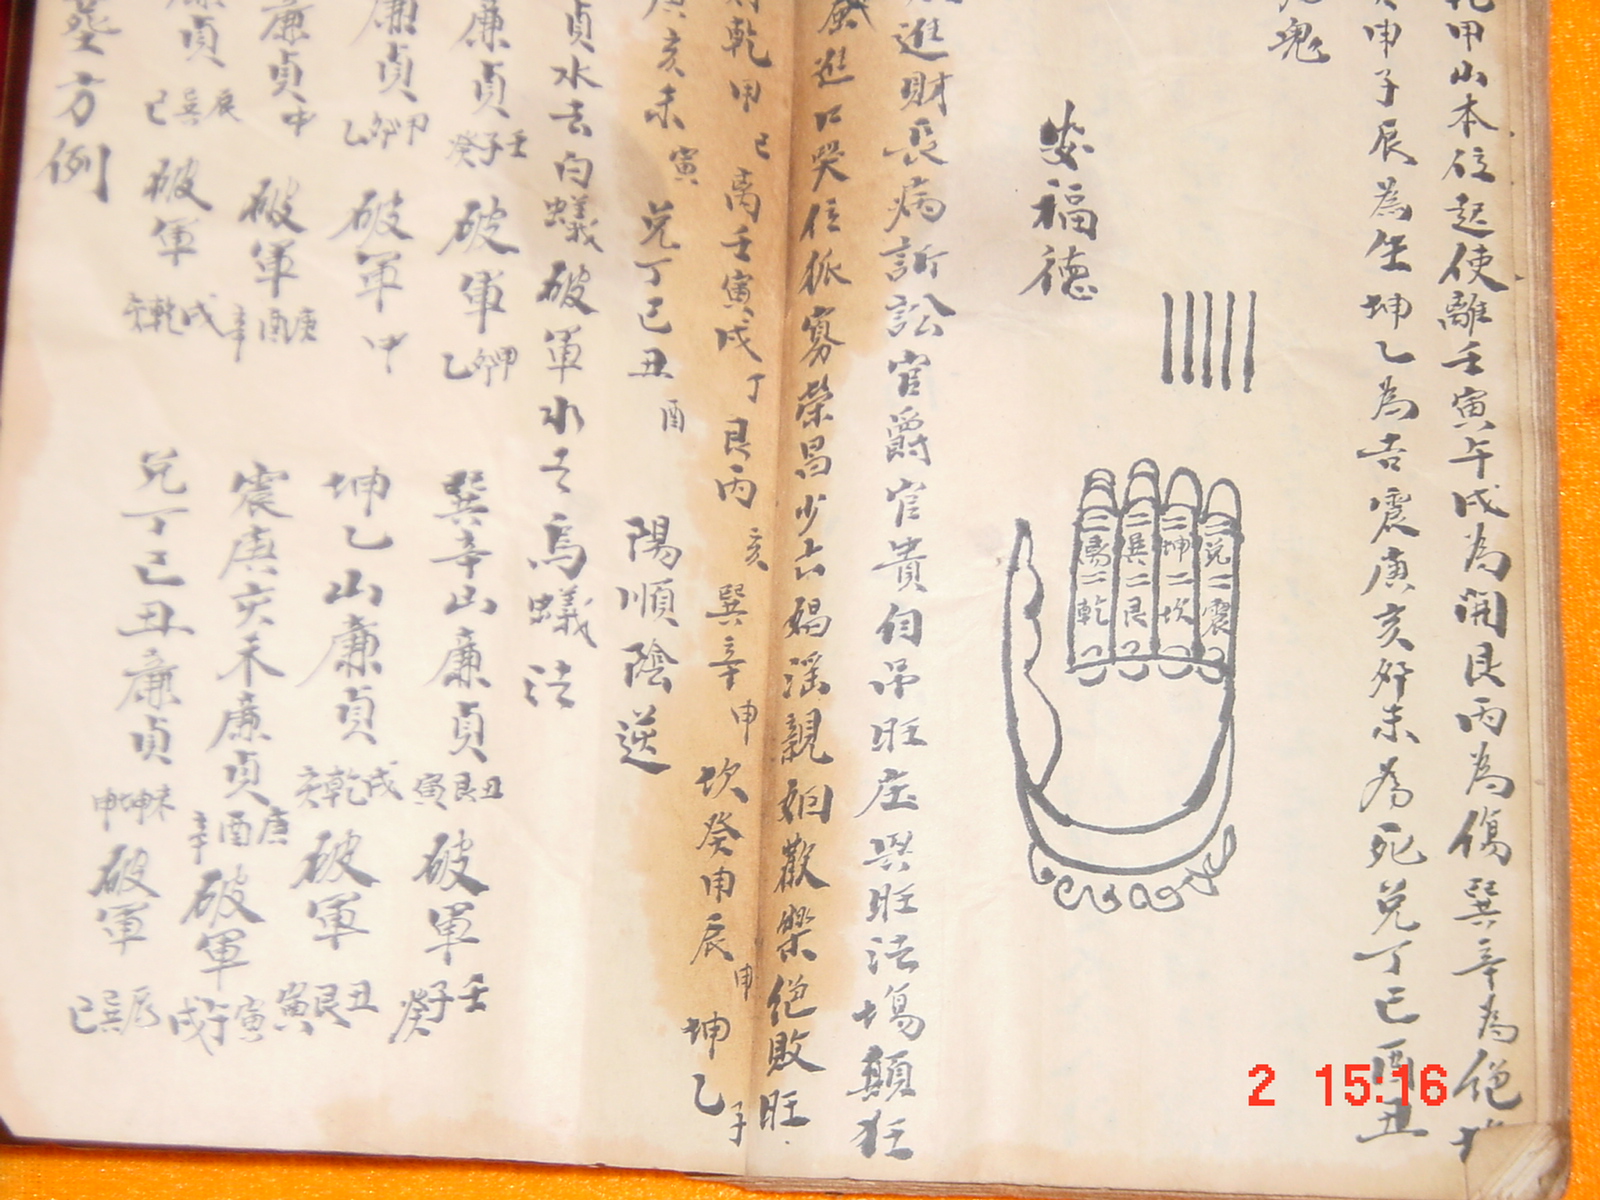 乾甲山本位起使離壬寅午戌為開艮丙為傷巽辛為絕坎
癸申子辰為生坤乙為吉震庚亥卯未為死兌丁巳酉丑
鬼
二兌二震
二坤二坎
二巽二艮
二离二乾
安福德
進財長病訴訟官爵官貴自吊旺庄興旺法場顛狂
進口哭位狐寡榮昌少亡媱親姻歡樂絕敗旺
乾甲巳离壬寅戌丁艮丙亥巽辛申坎癸申辰申坤乙子
庚亥未寅兌丁巳丑酉 陽順陰逆
貞水去白蟻破軍水去烏蟻法
廉貞癸子壬破軍乙卯甲 巽辛山廉貞寅艮丑破軍癸子壬
廉貞乙卯甲破軍中 坤乙山廉貞亥乾戌破軍寅艮丑
廉貞中破軍辛酉庚 震庚亥未廉貞辛酉庚破軍戌午寅
廉貞巳巽辰破軍亥乾戌 兌丁巳丑廉貞申坤未破軍巳巽辰
方例
2 15:16